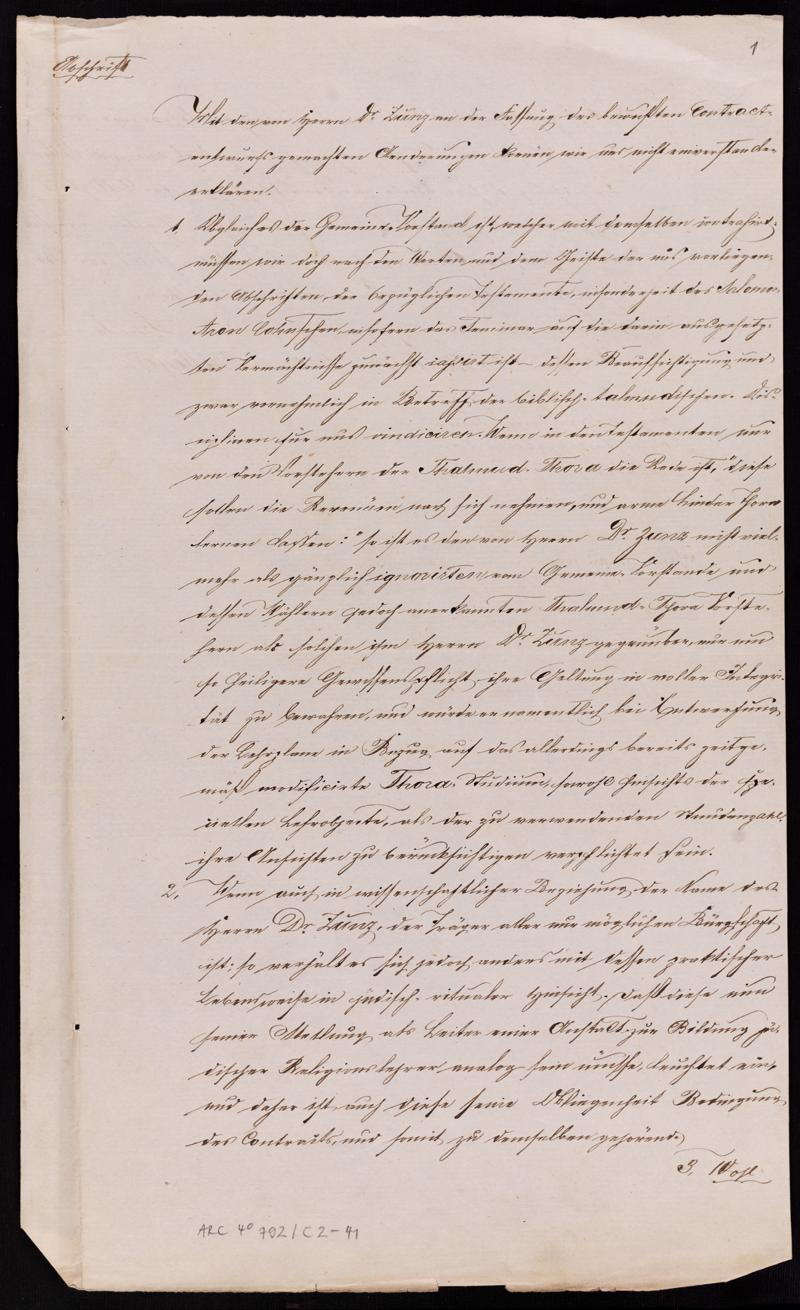 1
Abschrift
Mit den, von Herrn Dr. Zunz an der Fassung des bewußten Contract-
entwurfs gemachten Aenderungen können wir uns nicht einverstanden
erklären.
1. Obgleich es der Gemeinde-Vorstand ist, welcher mit demselben contrahirt,
müssen wir doch nach den Worten und dem Geiste der uns vorliegen-
den Abschriften, der bezüglichen Testamente, insonderheit des Salomo
Aron Cohnschen, insofern das Seminar auf die darin ausgesetz-
ten Vermächtnisse zunächst basirt ist – dessen Beaufsichtigung und
zwar vornehmlich in Betreff der biblisch-talmudischen Dis-
ciplinen für uns vindiciren. Wenn in den Testamenten nur
von den Vorstehern der Thalmud-Thora die Rede ist, "diese
sollen die Revenüen nach sich nehmen, und arme Kinder Thora
lernen lassen:" so ist es den von Herrn Dr. Zunz nicht viel-
mehr als gänzlich ignorirten, vom Gemeinde-Vorstande und
dessen Wählern jedoch anerkannten Thalmud-Thora Vorste-
hern als solchen, ihm Herrn Dr. Zunz gegenüber, nur um
so heiligere Gewissenspflicht, ihre Geltung in voller Integri-
tät zu bewahren, und würde er namentlich bei Entwerfung
der Lehrplane in Bezug auf das allerdings bereits zeitge-
mäß modificirte Thora-Studium, sowohl hinsichts der spe-
ciellen Lehrobjecte, als der zu verwendenden Stundenzahl
ihre Ansichten zu berücksichtigen verpflichtet sein.
2. Wenn auch in wissenschaftlicher Beziehung der Name des
Herrn Dr. Zunz, der Träger aller nur möglichen Bürgschaft,
ist; so verhält es sich jedoch anders mit dessen praktischer
Lebensweise in jüdisch-ritualer Hinsicht. Daß diese nun
seiner Stellung als Leiter einer Anstalt zur Bildung jü-
discher Religionslehrer, analog sein müsse, leuchtet ein,
und daher ist auch diese seine Obliegenheit Bedingung
des Contracts, und somit zu demselben gehörend.
ARC 4° 792/C2-41